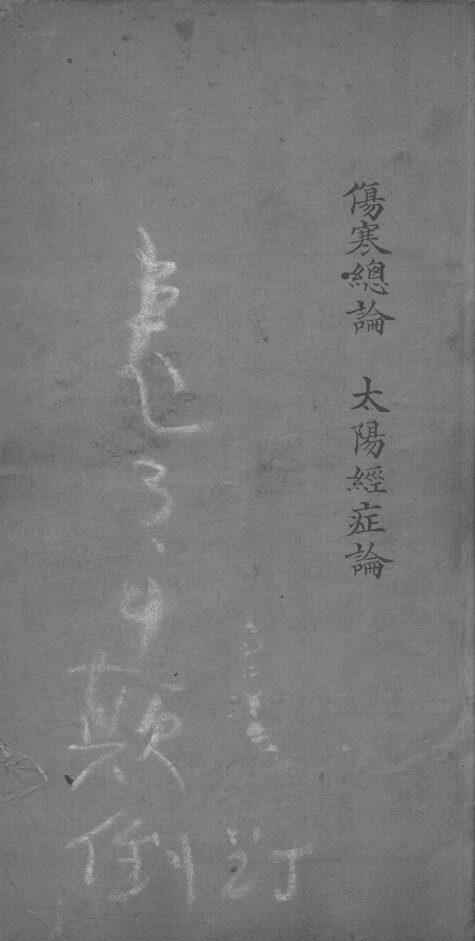 傷寒總論　太陽經症論
顛倒訂